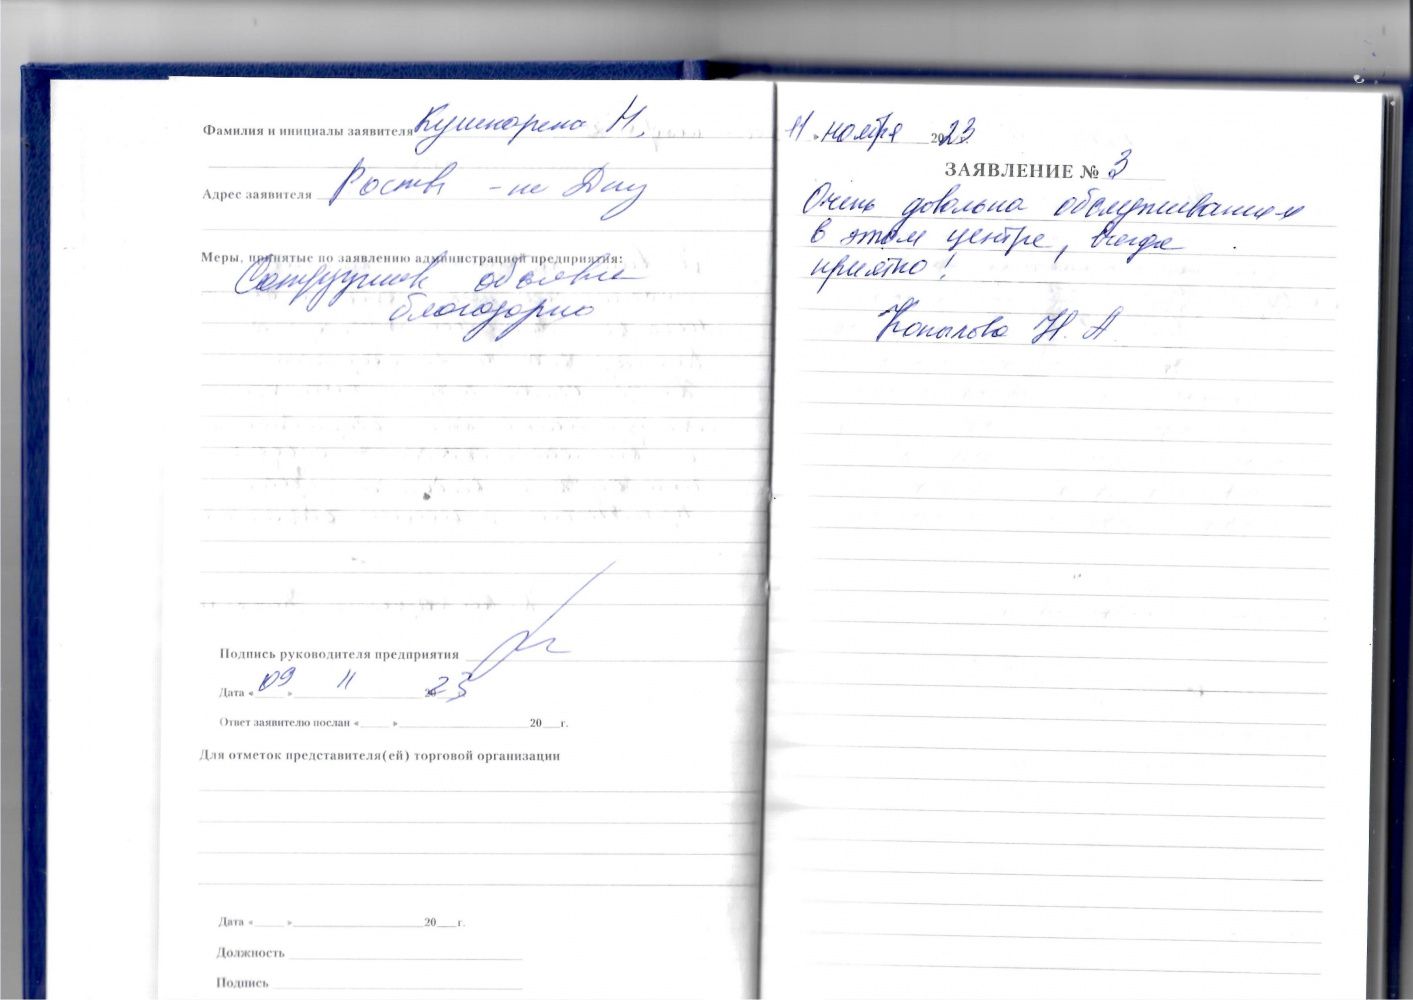 Фамилия и инициалы заявителя Кушнарена Н.
Адрес заявителя Ростов -на Дну
Меры, принятые по заявлению администрацией предприятия:
Сотруднок объявле
благодарно
Подпись руководителя предприятия
Дата « 09 » 11 2023
Ответ заявителю послан «____» ____ 20__г.
Для отметок представителя(ей) торговой организации
Дата «____» ____ 20__г.
Должность
Подпись
11 ноября 2023
ЗАЯВЛЕНИЕ № 3
Очень довольна обслуживанием
в этом центре, всегда
приятно!
Копылова Н. А.